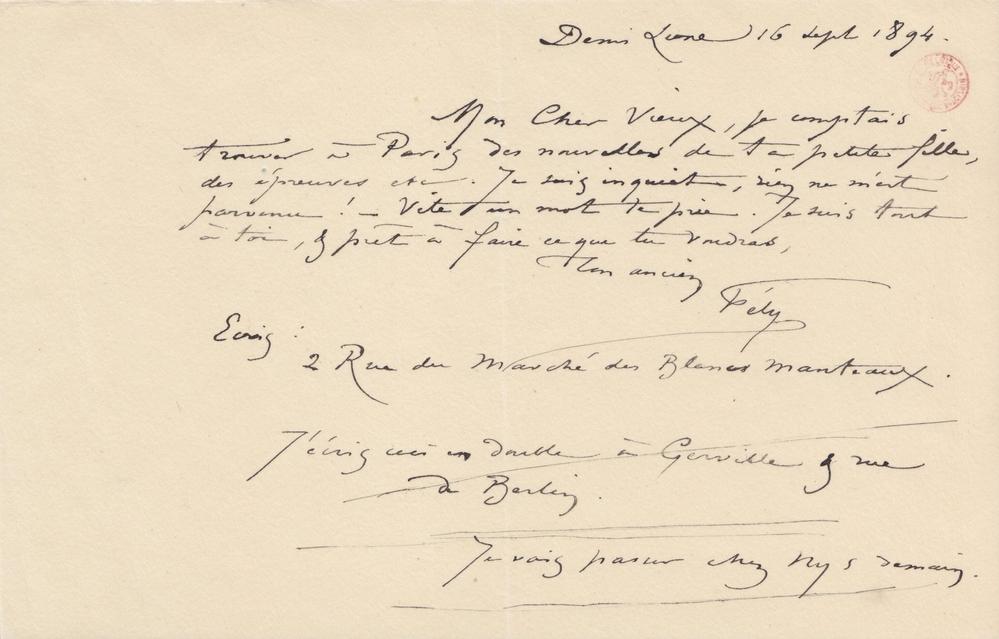 Demi Lune 16 sept 1894.
Mon Cher Vieux, je comptais
trouver à Paris des nouvelles de ta petite fille,
des épreuves etc. Je suis inquiet, rien ne m'est
parvenu ! – Vite un mot te prie. Je suis tout
à toi, & prêt à faire ce que tu voudras,
Ton ancien
Fély
Ecris :
2 Rue du Marché des Blancs Manteaux.
J'écris ceci en double à Gerville & rue
de Berlin.
Je vais passer chez Nys demain.